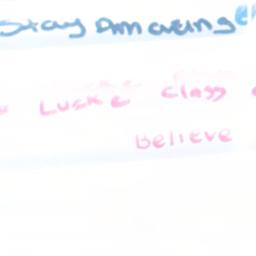 Stay Amazing
Luske Class
Believe